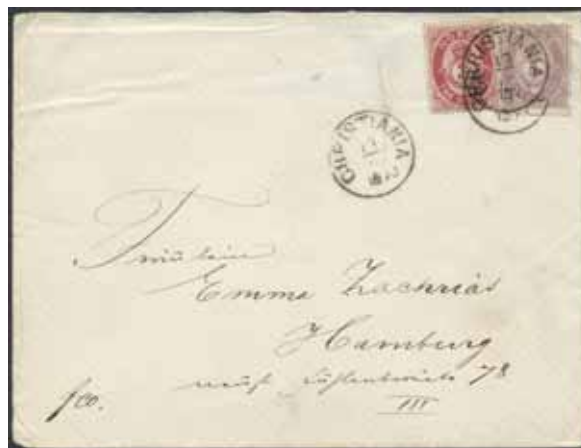 CHRISTIANIA
CHRISTIANIA
Fräulein
Emma Zachrias
Hamburg
78
fco.
III